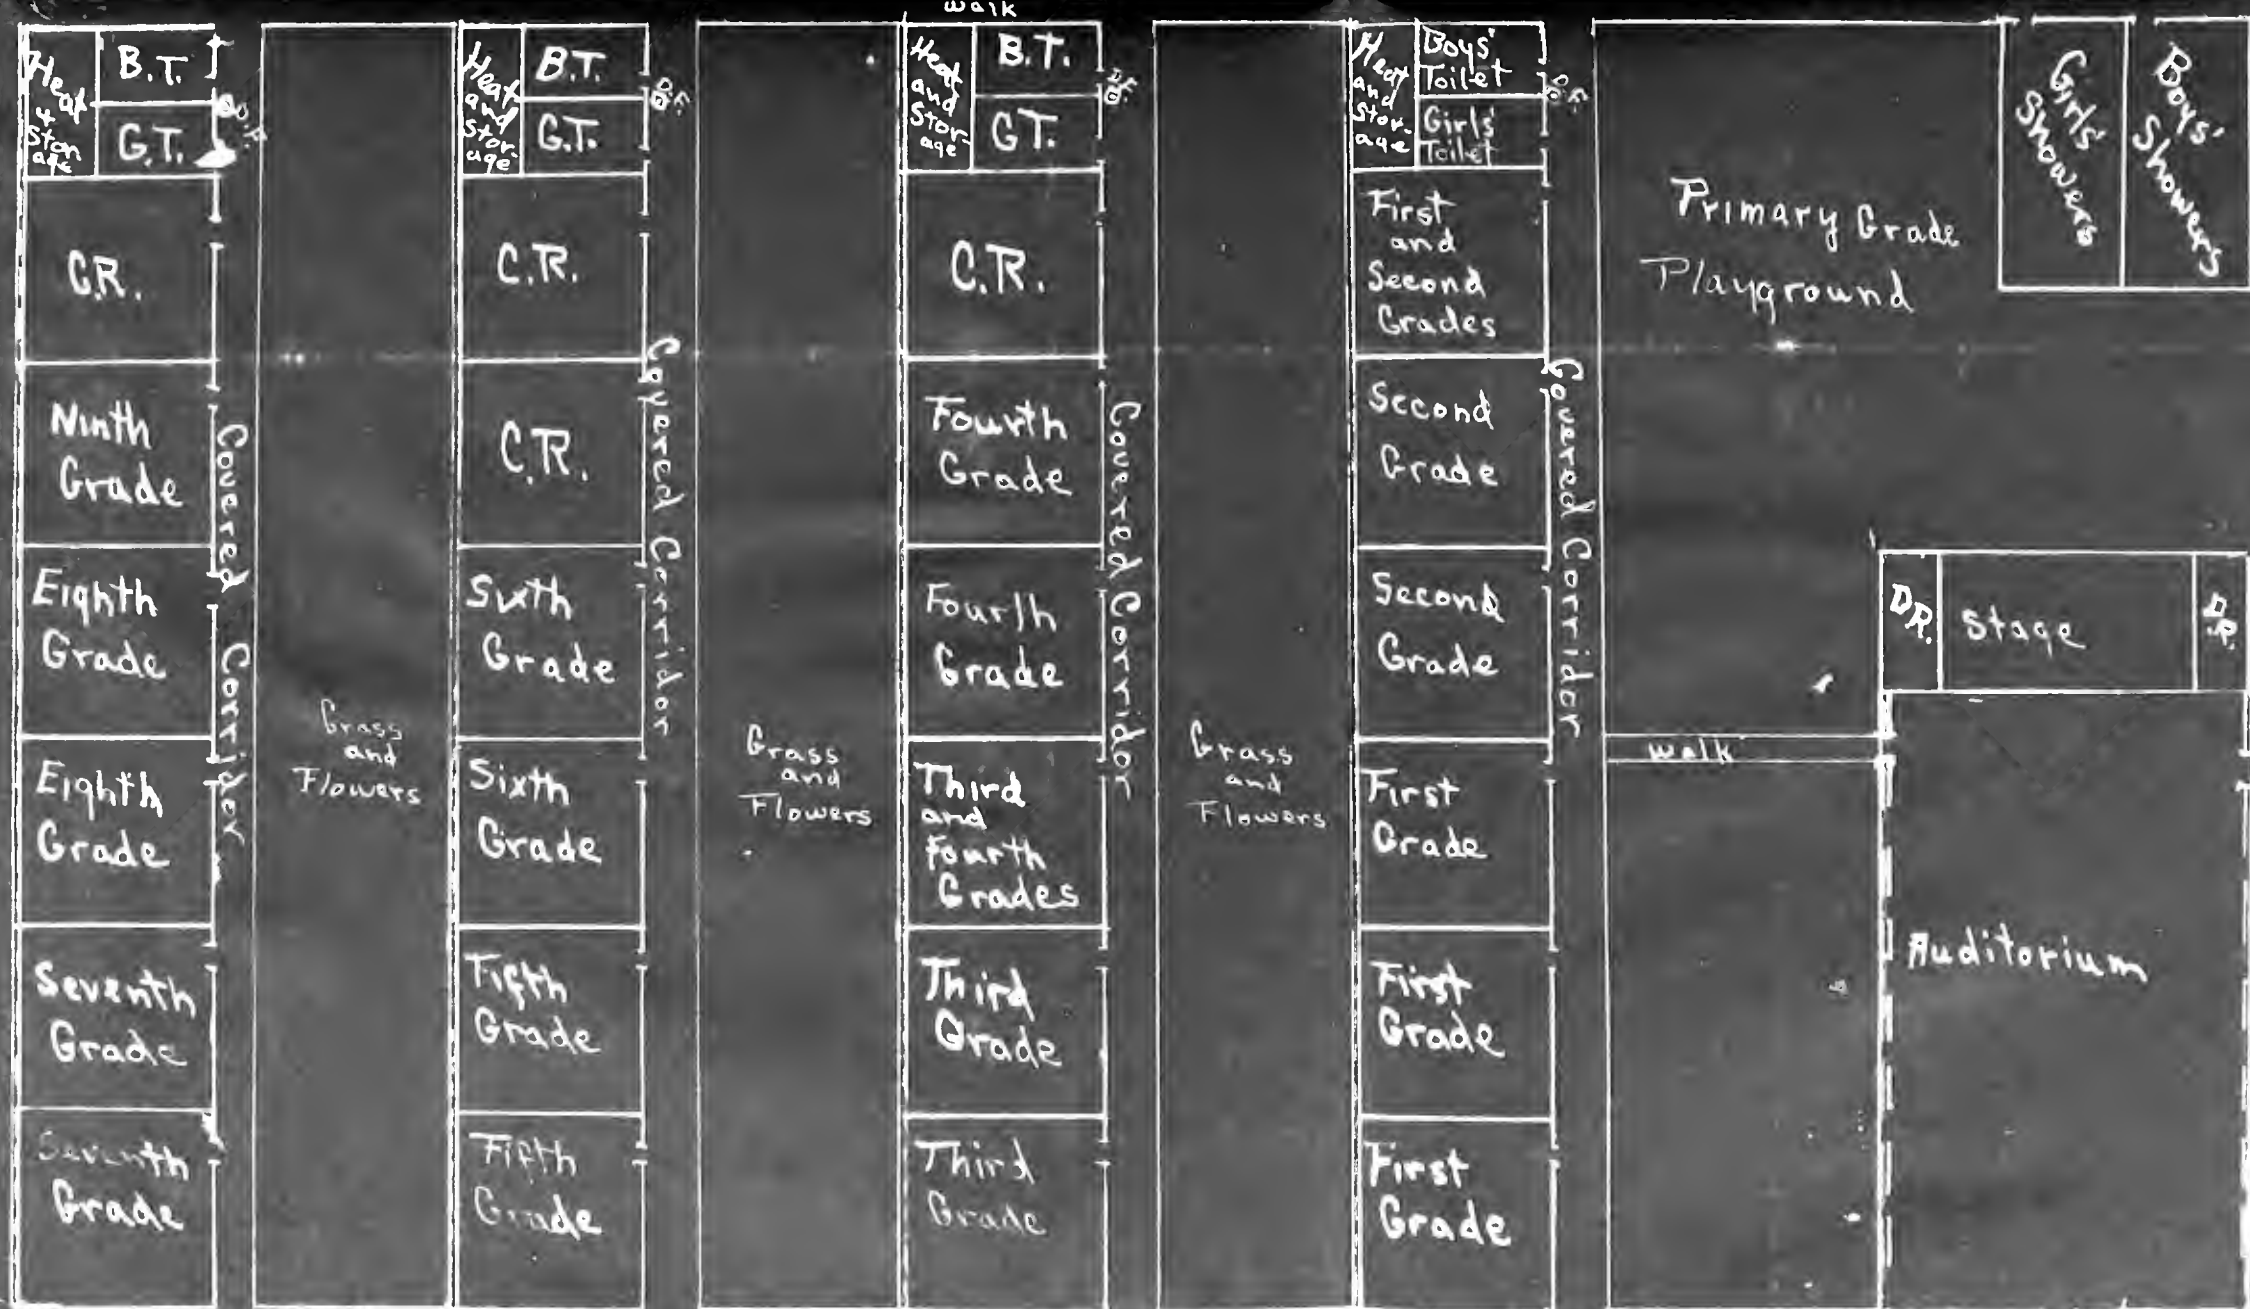 walk
Heat
+
Stor
age
B.T.
G.T.
D.F.
C.R.
Ninth
Grade
Eighth
Grade
Eighth
Grade
Seventh
Grade
Seventh
Grade
Covered Corridor
Grass
and
Flowers
Heat
and
Stor-
age
B.T.
G.T.
D.F.
C.R.
C.R.
Sixth
Grade
Sixth
Grade
Fifth
Grade
Fifth
Grade
Covered Corridor
Grass
and
Flowers
Heat
and
Stor-
age
B.T.
GT.
D.F.
C.R.
Fourth
Grade
Fourth
Grade
Third
and
Fourth
Grades
Third
Grade
Third
Grade
Covered Corridor
Grass
and
Flowers
Heat
and
Stor-
age
Boys'
Toilet
Girls'
Toilet
D.F.
First
and
Second
Grades
Second
Grade
Second
Grade
First
Grade
First
Grade
First
Grade
Covered Corridor
Primary Grade
Playground
Girls'
Showers
Boys'
Showers
walk
D.R.
Stage
D.R.
Auditorium